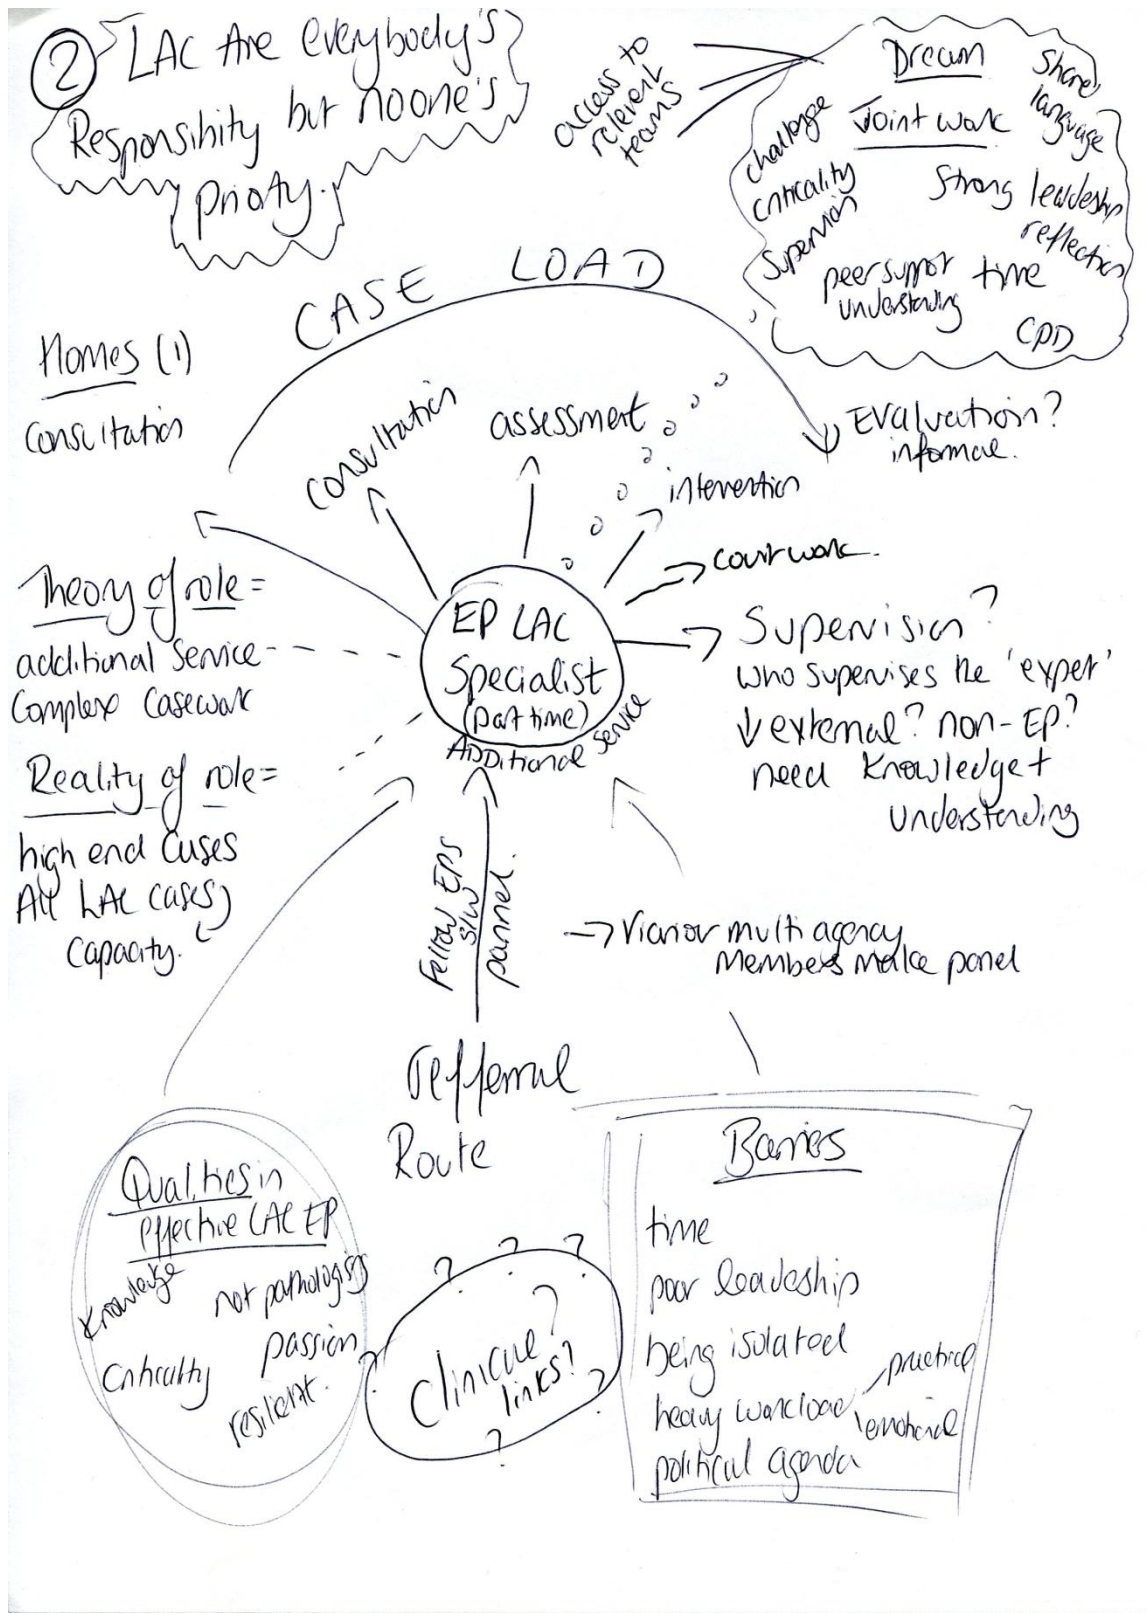 ②
LAC Are everybody's
Responsibility but no one's
priority.
access to
relevent
teams
Dream
Joint work
Share
language
challenge
criticality
Supervision
Strong leadeship
reflection
peer support
understanding
time
CPD
CASE LOAD
Homes (1)
Consultation
consultation
assessment
intervention
court work.
EValuation?
informal.
Theory of role =
additional Service
Complex Casework
Reality of role =
high end Cases
All LAC cases
Capacity.
EP LAC
Specialist
(part time)
ADDitional Service
Supervision?
who supervises the 'expert'
external? non-EP?
need Knowledge +
Understanding
Fellow EPS
S/W
pannel.
multi agency
Members make panel
refferral
Route
Qualities in
effective LAC EP
Knowledge
not pathologising
passion
Criticality
resilient.
? ? ?
Clinical?
links?
? ? ?
Barriers
time
poor leadeship
being isolated
heavy workload
practical
emotional
political agenda